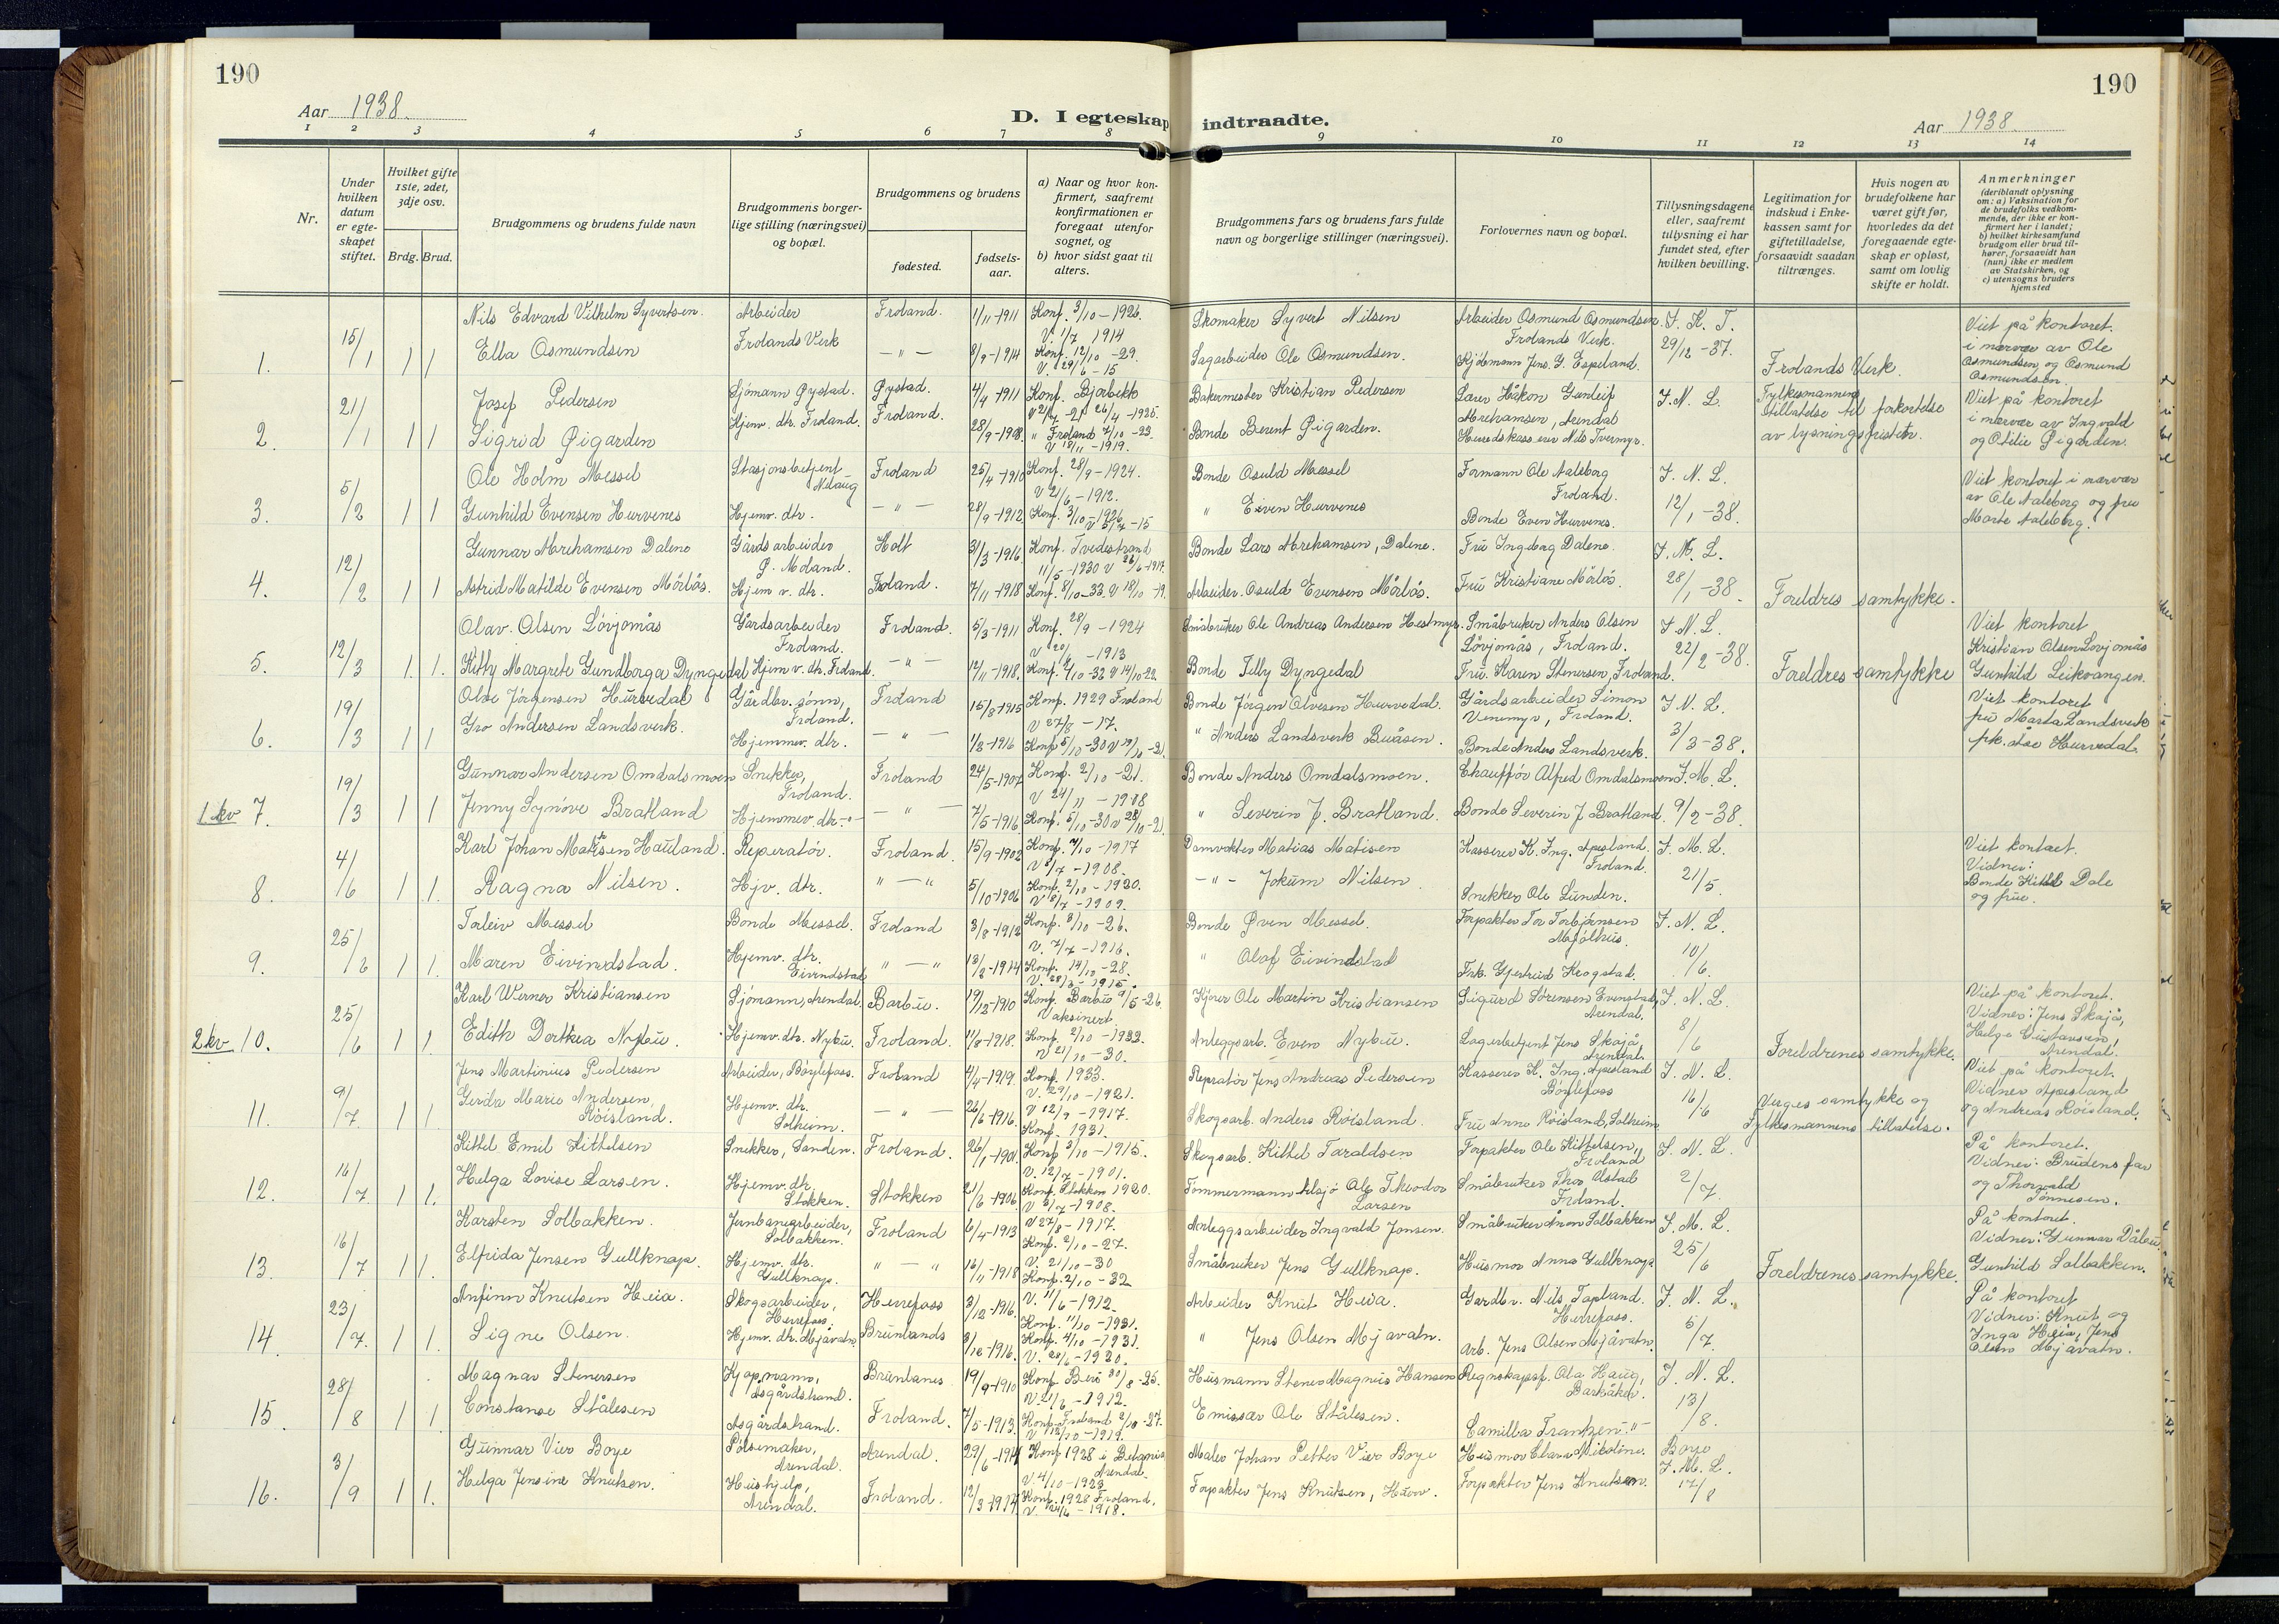 190
190
Aar 1938.
D. I egteskap indtraadte.
Aar 1938.
1 2 3 4 5 6 7 8 9 10 11 12 13 14
Nr.
Under hvilken datum er egteskapet stiftet.
Hvilket gifte 1ste, 2det, 3dje osv.
Brdg. Brud.
Brudgommens og brudens fulde navn
Brudgommens borgerlige stilling (næringsvei) og bopæl.
Brudgommens og brudens
fødested.
fødselsaar.
a) Naar og hvor konfirmert, saafremt konfirmationen er foregaat utenfor sognet, og
b) hvor sidst gaat til alters.
Brudgommens fars og brudens fars fulde navn og borgerlige stillinger (næringsvei).
Forlovernes navn og bopæl.
Tillysningsdagene eller, saafremt tillysning ei har fundet sted, efter hvilken bevilling.
Legitimation for indskud i Enkekassen samt for giftetilladelse, forsaavidt saadan tiltrænges.
Hvis nogen av brudefolkene har været gift før, hvorledes da det foregaaende egteskap er opløst, samt om lovlig skifte er holdt.
Anmerkninger
(deriblandt oplysning om: a) Vaksination for de brudefolks vedkommende, der ikke er konfirmert her i landet; b) hvilket kirkesamfund brudgom eller brud tilhører, forsaavidt han (hun) ikke er medlem av Statskirken, og c) utensogns bruders hjemsted
1. 15/1 1 1
Nils Edvard Vilhelm Syvertsen. Arbeider Frolands Verk Froland. 1/11-1911 Konf. 3/10-1926. V. 1/7 1914 Skomaker Syvert Nilsen Arbeider Osmund Osmundsen. Frolands Verk. J. K. T. 29/12-37.
Elba Osmundsen -"- 8/9-1914 Konf. 12/10-29. V. 29/6-15 Sagarbeider Ole Osmundsen. Kjøbmann Jens G. Espeland. Frolands Verk.
Viet på kontoret. i nærvær av Ole Osmundsen og Osmund Osmundsen.
2. 21/1 1 1
Josef Pedersen Sjømann Øystad. Øystad. 4/4-1911 Konf. Bjorbekk 26/4-1925. Bakermester Kristian Pedersen Lærer Håkon Gunleif Abrehamsen, Arendal J. N. L.
Sigrid Øigarden Hjemv. dtr. Froland. Froland. 28/9-1908. " Froland 7/10-23. V 18/11-1919. Bonde Berent Øigarden. Herredskasserer Nils Tvermyr.
Fylkesmannens tillatelse til forkortelse av lysningsfristen.
Viet på kontoret i nærvær av Ingvald og Otilie Øigarden.
3. 5/2 1 1
Ole Holm Messel Stasjonsbetjent Nelaug Froland 25/4-1910 Konf. 28/9-1924. V 21/6-1912. Bonde Osuld Messel Formann Ole Nalsborg Froland. J. N. L.
Gunhild Evensen Hurvenes Hjemv. dtr. -"- 28/9-1912 Konf. 3/10-1926 V 5/4-15 " Even Hurvenes Bonde Even Hurvenes. 12/1-38.
Viet kontoret i nærvær av Ole Nalsborg og fru Marte Nalsborg.
4. 12/2 1 1
Gunnar Abrehamsen Dalene Gårdsarbeider Ø. Moland. Holt 31/3-1916 Konf. Tvedestrand 11/5-1930 V 26/6-1917. Bonde Lars Abrehamsen, Dalene. Fru Ingeborg Dalene. J. N. L.
Astrid Matilde Evensen Mörlös. Hjem v. dtr. Froland. 7/11-1918 Konf. 8/10-33. V 18/10-19. Arbeider Osuld Evensen Mörlös. Fru Kristiane Mörlös. 28/1-38. Foreldres samtykke.
5. 12/3 1. 1.
Olav Olsen Lövjomås Gårdsarbeider Froland. Froland. 5/3-1911 Konf. 28/9-1924 V 20/6-1913 Småbruker Ole Andreas Andersen Hestmyr. Småbruker Anders Olsen Lövjomås, Froland. J. N. L. 22/2-38.
Kitty Margrete Gundborga Dyngedal Hjem v. dtr. Froland. -"- 12/11-1918. Konf. 2/10-32 V 14/10-22. Bonde Tellef Dyngedal Fru Karen Stenersen, Froland. Foreldres samtykke
Viet kontoret Kristian Olsen Lovjomås Gunhild Leikvangen.
6. 19/3 1 1
Olve Jörgensen Hurvedal Gårdbr. sønn, Froland. Froland 15/8-1915 Konf. 1929 Froland V 27/8-17. Bonde Jörgen Olvesen Hurvedal. Gårdsarbeider Simon Venemyr, Froland. J. N. L.
Gro Anderssen Landsverk. Hjemmev. dtr. -"- 1/3-1916 Konf. 5/10-30 V 19/10-21. " Anders Landsverk Buåsen. Bonde Anders Landsverk. 3/3-38.
Viet kontoret fru Marta Landsverk frk. Åse Hurvedal.
1 kv 7. 19/3 1 1
Gunnar Andersen Omdalsmoen Snekker, Froland. Froland 24/5-1907 Konf. 2/10-21. V 24/11-1908 Bonde Anders Omdalsmoen. Chauffør Alfred Omdalsmoen J. N. L.
Jenny Synöve Bratland Hjemmev. dtr. -"- -"- 7/5-1916 Konf. 5/10-30 V 28/10-21. " Severin J. Bratland. Bonde Severin J. Bratland. 9/2-38.
8. 4/6 1 1.
Karl Johan Matisen Hauland. Reperatör. Froland. 15/9-1902 Konf. 7/10-1917 V 8/7-1908. Damvokter Matias Matisen Kasserer K. Ing. Apesland. Froland. J. N. L.
Ragna Nilsen. Hjv. dtr. "-" 5/10-1906 Konf. 2/10-1920. V 18/7-1909. -"- Jokum Nilsen Snekker Ole Lunden. 21/5.
Viet kontoret. Vidner: Bonde Kittel Dale og frue.
9. 25/6 1 1.
Torleiv Messel Bonde Messel. Froland 3/8-1912 Konf. 3/10-26. V. 7/7-1916. Bonde Øven Messel. Forpakter Tor Torbjörnsen Mjølhus. J. N. L.
Maren Eivindstad. Hjemv. dtr. Eivindstad "-" 13/2-1914 Konf. 14/10-28. V. 28/3-1915. " Olaf Eivindstad Frk. Gjertrud Heogstad. 10/6.
2 kv 10. 25/6 1 1.
Karl Werner Kristiansen Sjømann, Arendal. Barbu. 19/12-1910 Konf. Barbu 9/5-26. Vaksinert Kjører Ole Martin Kristiansen Sigurd Sörensen Evenstad, Arendal. J. N. L.
Edith Dorthea Nybu. Hjemv. dtr. Nybu. Froland. 11/8-1918. Konf. 2/10-1933. V 21/10-30. Anleggsarb. Even Nybu. Lagerbetjent Jens Skajå Arendal. 8/6 Foreldrenes samtykke.
Viet på kontoret. Vidner: Jens Skajå, Helga Gustavsen, Arendal.
11. 9/7 1 1.
Jens Martinius Pedersen Arbeider, Böylefoss. Froland 4/4-1919. Konf. 1933. V. 29/10-1921. Repratör Jens Andreas Pedersen Kasserer K. Ing. Apesland Böylefoss J. N. L.
Gerda Marie Andersen, Röisland. Hjemv. dtr. Solheim. -"- 26/6-1916. V 12/9-1917. Konf. 1931. Skogsarb. Anders Röisland. Fru Anne Röisland, Solheim 16/6 Verges samtykke og Fylkesmannens tillatelse.
Viet på kontoret. Vidner Apesland og Andreas Röisland.
12. 16/7 1 1.
Kittel Emil Kittelsen Snekker, Sanden. Froland. 26/1-1901 Konf. 3/10-1915. V. 12/7-1901. Skogsarb. Kittel Taraldsen Forpakter Ole Kittelsen, Froland J. N. L.
Helga Lovise Larsen. Hjemv. dtr. Stokken. Stokken 21/6-1906 Konf. Stokken 1920. V 3/7-1908. Tømmermann tilsjø Ole Theodor Larsen Småbruker Thor Ulstad Froland. 2/7.
På kontoret. Vidner: Brudens far og Thorvald Tönnesen.
13. 16/7 1 1.
Karsten Solbakken. Jernbanearbeider, Solbakken. Froland 6/4-1913 V 27/8-1917. Konf. 2/10-27. Anleggsarbeider Ingvald Jensen. Småbruker Aron Solbakken J. N. L.
Elfrida Jensen Gullknap. Hjemv. dtr. Gullknap. "-" 16/11-1918 V. 21/10-30 Konf. 2/10-32 Småbruker Jens Gullknap. Husmor Anna Gullknap 25/6 Foreldrenes samtykke.
På kontoret. Vidner: Gunnar Dålbu. Gunhild Solbakken.
14. 23/7. 1 1
Anfinn Knutsen Heia. Skogsarbeider, Herrefoss. Herrefoss 3/12-1916. V. 11/6-1912. Konf. 11/10-1931. Arbeider Knut Heia. Gardbr. Nils Topland. Herrefoss. J. N. L.
Signe Olsen. Hjemv. dtr. Mjåvatn. Brunlands 3/12-1916. Konf. 4/10-1931. V. 28/6-1920. " Jens Olsen Mjavatn. Arb. Jens Olsen Mjåvatn. 5/7.
På kontoret Vidner: Knut og Inga Heia, Jens Olsen Mjåvatn.
15. 28/8 1 1
Magnar Stenersen Kjøpmann, Åsgårdstrand. Brunlanes 19/9-1910 Konf. 30/8-25. V. 21/6-1912. Husmann Stener Magnus Hansen Regnskapsf. Ola Haug, Barkåker. J. N. L.
Constanse Stålesen Åsgårdstrand. Froland. 7/5-1913. Konf. Froland 2/10-27. V 12/10-1919. Emissær Ole Stålesen. Camilla Frantzen. "- 13/8.
16. 3/9 1 1.
Gunnar Vier Boye Pölsemaker, Arendal. Arendal. 29/6-1914 Konf. 1928 i Betania Arendal. V 4/10-1923 Maler Johan Petter Vier Boye Husmor Clara Nikoline Boye J. N. L.
Helga Jensine Knutsen. Hushjelp, Arendal. Froland. 12/3-1914 Konf. 1928 Froland. V. 24/6-1918. Forpakter Jens Knutsen, Hurv. Forpakter Jens Knutsen. 17/8